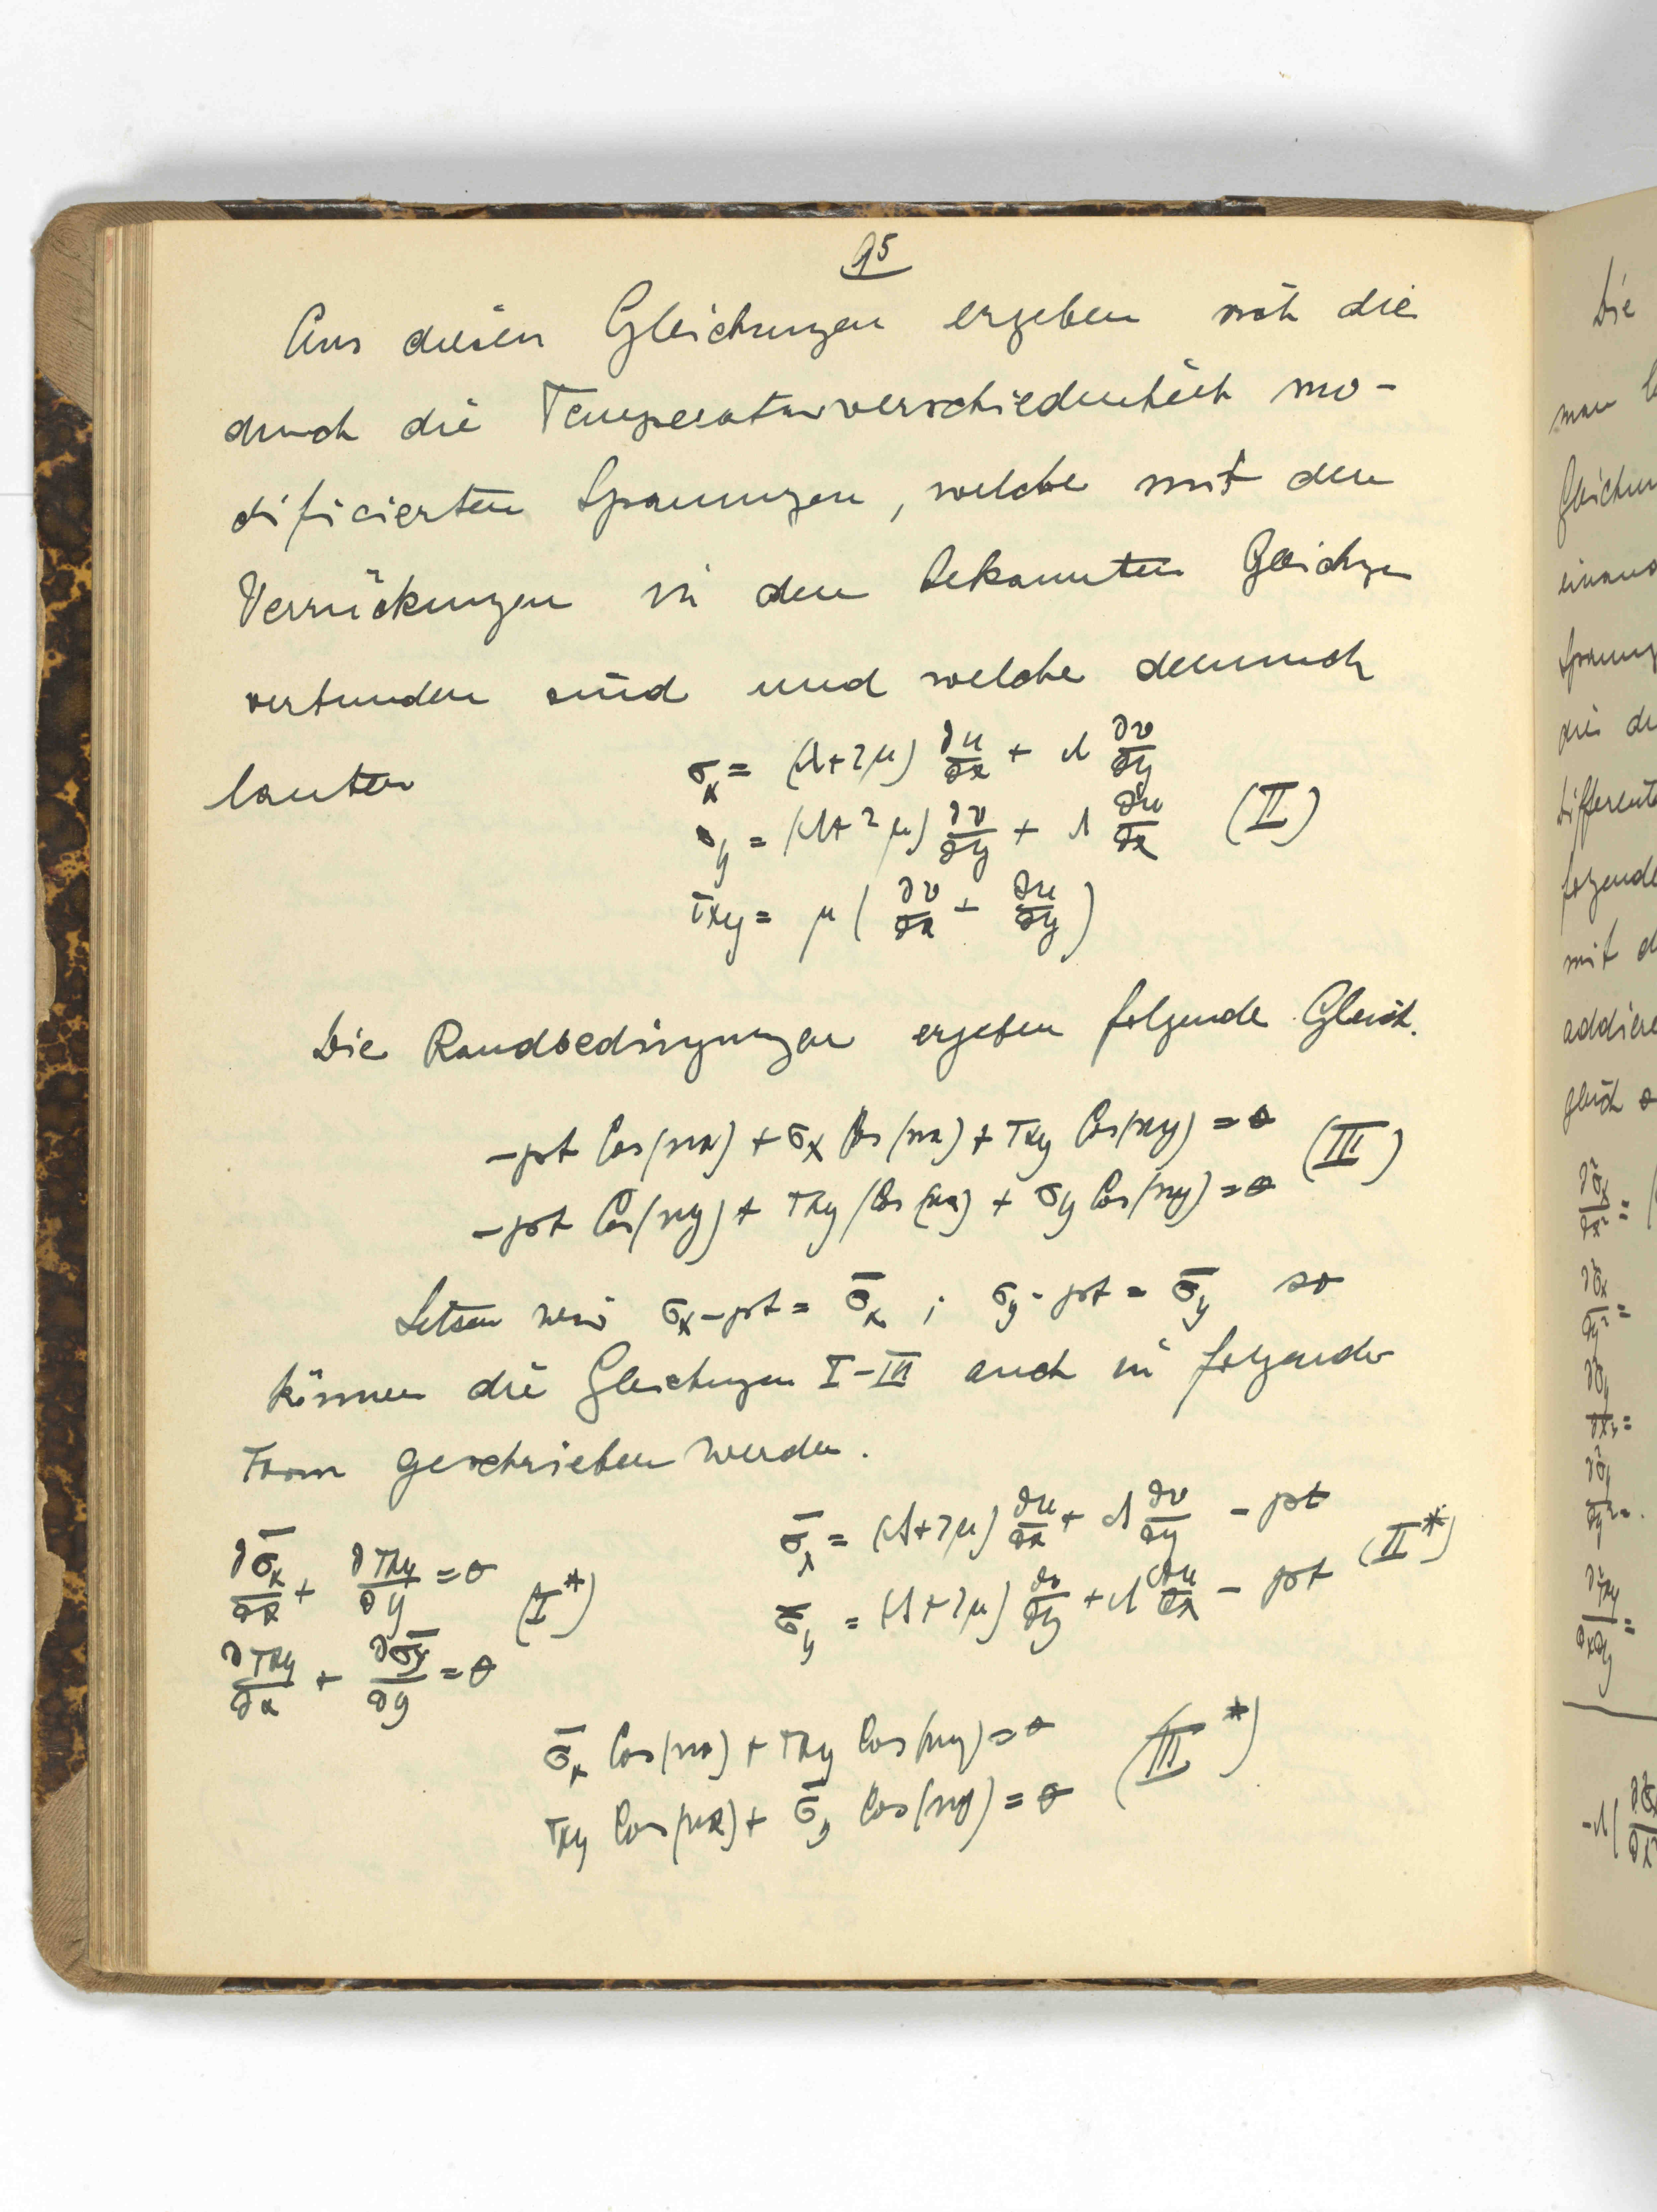 95
Aus diesen Gleichungen ergeben sich die
durch die Temperaturverschiedenheit mo-
dificierten Spannungen, welche mit den
Verrückungen in den bekannten Gleichgen
verbunden sind und welche demnach
lauten σx = (Λ+2μ) ∂u/∂x + Λ ∂v/∂y
σy = (Λ+2μ) ∂v/∂y + Λ ∂u/∂x (II)
τxy = μ ( ∂v/∂x + ∂u/∂y )
Die Randbedingungen ergeben folgende Gleich.
-pt Cos(nx) + σx Cos(nx) + τxy Cos(ny) = 0 (III)
-pt Cos(ny) + τxy Cos(nx) + σy Cos(ny) = 0
Setzen wir σx-pt = σ̄x ; σy-pt = σ̄y so
können die Gleichungen I-III auch in folgender
Form geschrieben werden.
∂σ̄x/∂x + ∂τxy/∂y = 0 (I*)
∂τxy/∂x + ∂σ̄y/∂y = 0
σ̄x = (Λ+2μ) ∂u/∂x + Λ ∂v/∂y - pt (II*)
σ̄y = (Λ+2μ) ∂v/∂y + Λ ∂u/∂x - pt
σ̄x Cos(nx) + τxy Cos(ny) = 0 (III*)
τxy Cos(nx) + σ̄y Cos(ny) = 0
Die
man
einan
die
folgende
mit d
addiere
gleich